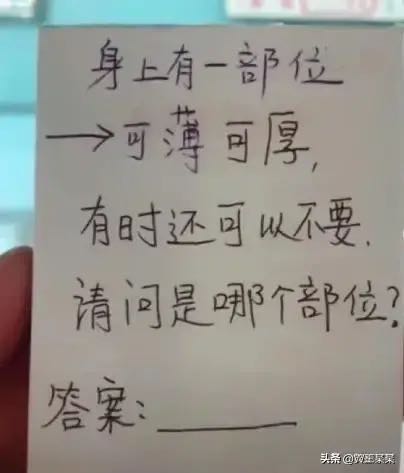 身上有一部位
→可薄可厚,
有时还可以不要.
请问是哪个部位?
答案:______
头条 @双王某某